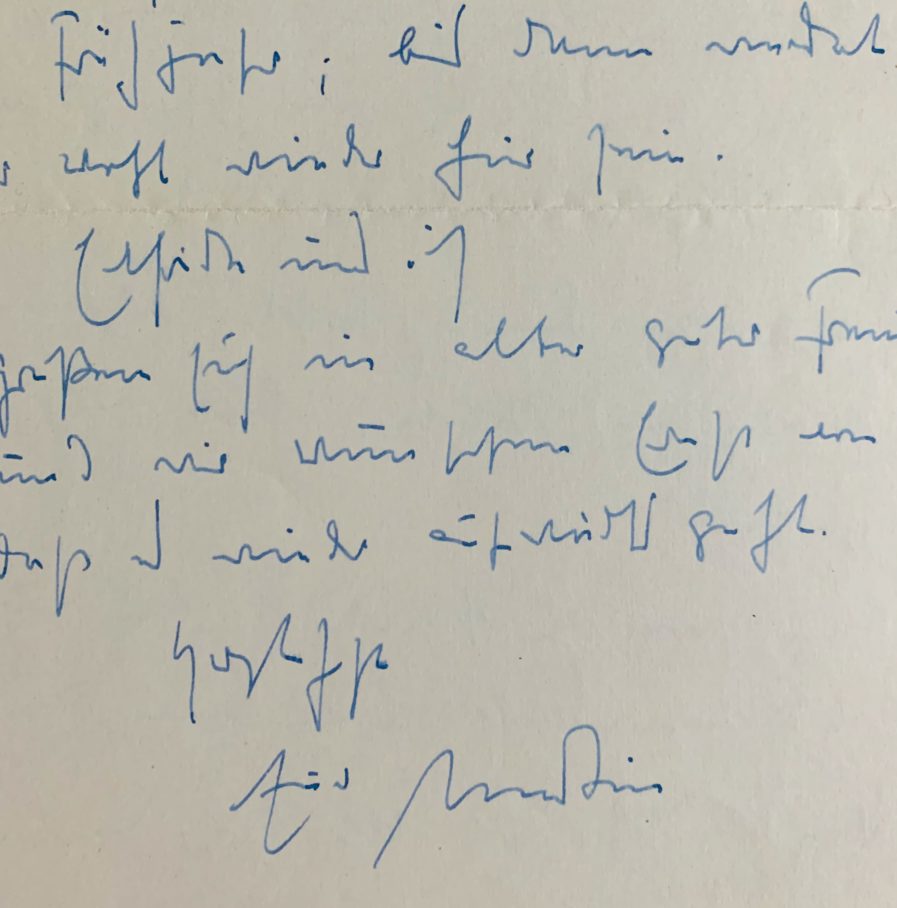 Frühjahr; bis dann werdet
wohl wieder hier sein.
Elfride und ich
grüßen Euch in alter guter
und wir wünschen
daß es wieder aufwärts geht.
Herzlichst
Euer Martin